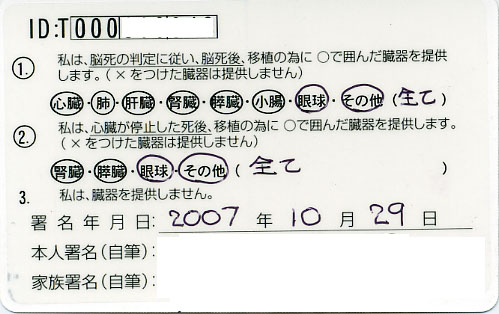 ID:T000
1. 私は、脳死の判定に従い、脳死後、移植の為に○で囲んだ臓器を提供
します。(×をつけた臓器は提供しません)
心臓・肺・肝臓・腎臓・膵臓・小腸・眼球・その他(全て)
2. 私は、心臓が停止した死後、移植の為に○で囲んだ臓器を提供します。
(×をつけた臓器は提供しません)
腎臓・膵臓・眼球・その他(全て)
3. 私は、臓器を提供しません。
署名年月日:2007年10月29日
本人署名(自筆):
家族署名(自筆):